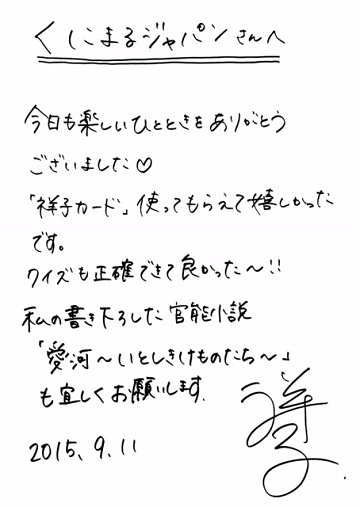 くにまるジャパンさんへ
今日も楽しいひとときをありがとう
ございました♡
「祥子カード」使ってもらえて嬉しかった
です。
クイズも正確できて良かった〜!!
私の書き下ろした官能小説
「愛河〜いとしきけものたち〜」
も宜しくお願いします.
祥子
2015.9.11